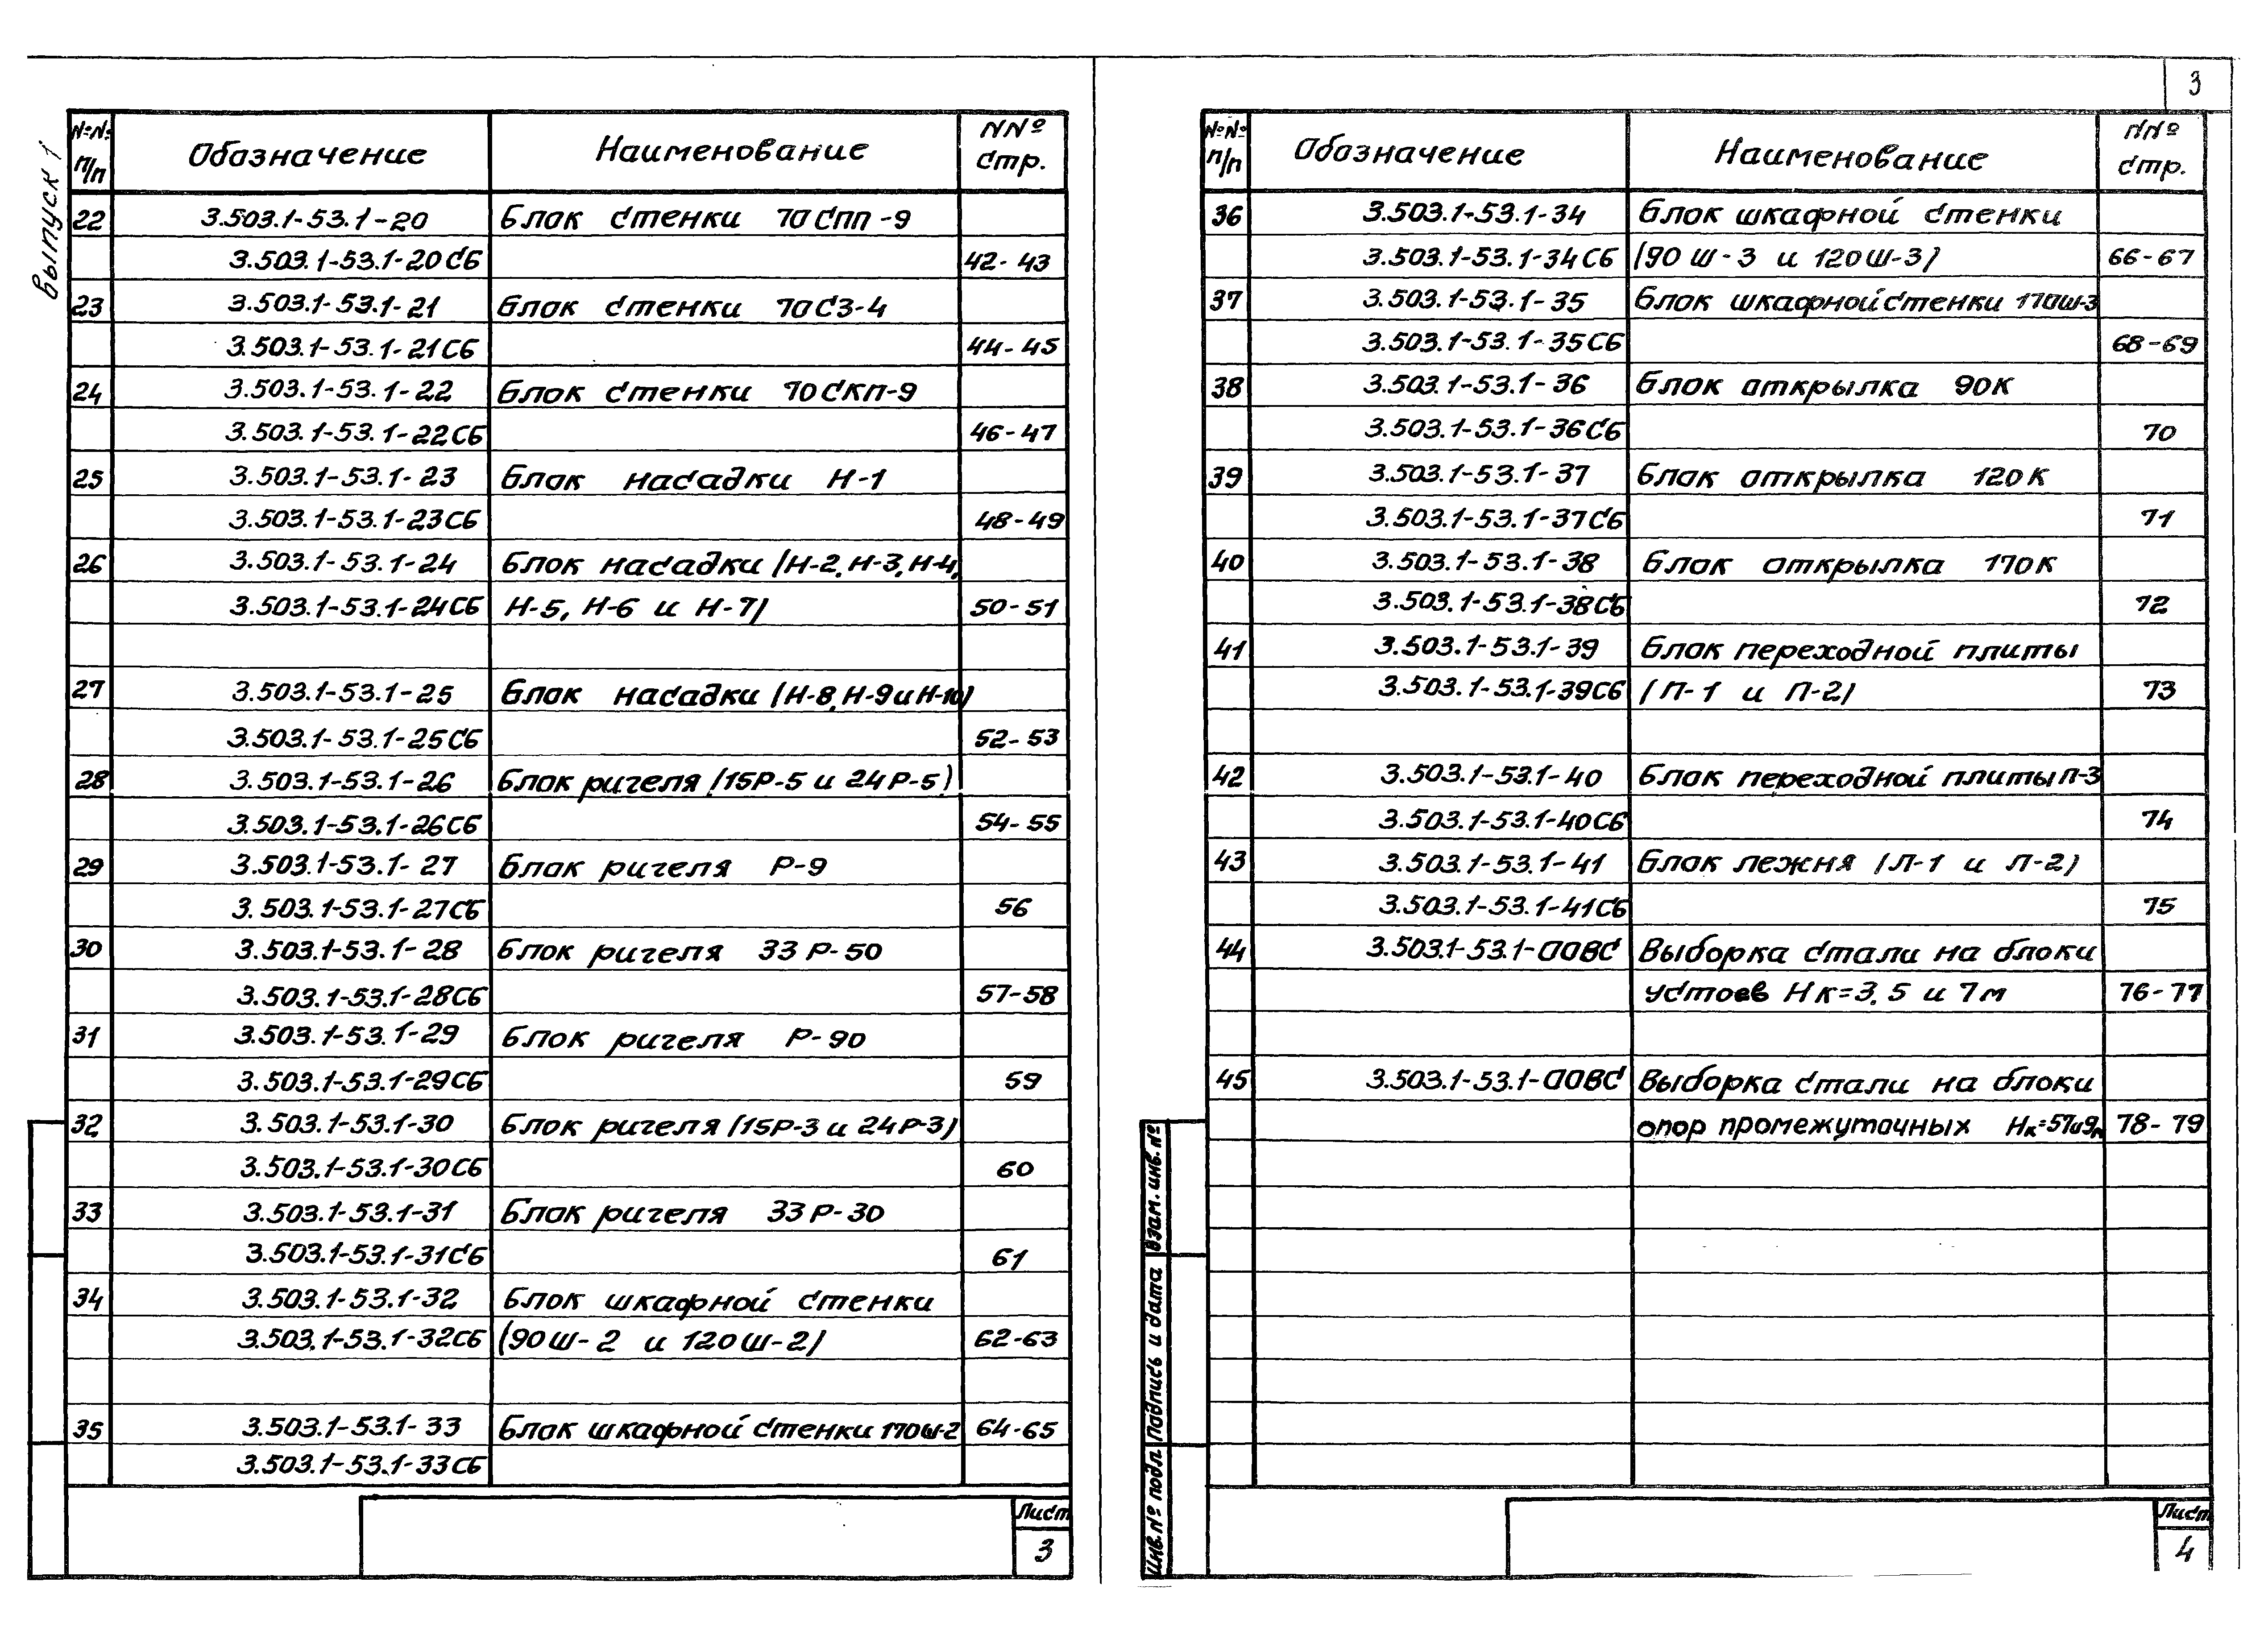 3
выпуск 1
№№ п/п Обозначение Наименование NNº стр.
22 3.503.1-53.1-20 Блок стенки 70СПП-9
3.503.1-53.1-20СБ 42-43
23 3.503.1-53.1-21 Блок стенки 70СЗ-4
3.503.1-53.1-21СБ 44-45
24 3.503.1-53.1-22 Блок стенки 70СКП-9
3.503.1-53.1-22СБ 46-47
25 3.503.1-53.1-23 Блок насадки Н-1
3.503.1-53.1-23СБ 48-49
26 3.503.1-53.1-24 Блок насадки (Н-2, Н-3, Н-4,
3.503.1-53.1-24СБ Н-5, Н-6 и Н-7) 50-51
27 3.503.1-53.1-25 Блок насадки (Н-8, Н-9 и Н-10)
3.503.1-53.1-25СБ 52-53
28 3.503.1-53.1-26 Блок ригеля (15Р-5 и 24Р-5)
3.503.1-53.1-26СБ 54-55
29 3.503.1-53.1-27 Блок ригеля Р-9
3.503.1-53.1-27СБ 56
30 3.503.1-53.1-28 Блок ригеля 33Р-50
3.503.1-53.1-28СБ 57-58
31 3.503.1-53.1-29 Блок ригеля Р-90
3.503.1-53.1-29СБ 59
32 3.503.1-53.1-30 Блок ригеля (15Р-3 и 24Р-3)
3.503.1-53.1-30СБ 60
33 3.503.1-53.1-31 Блок ригеля 33Р-30
3.503.1-53.1-31СБ 61
34 3.503.1-53.1-32 Блок шкафной стенки
3.503.1-53.1-32СБ (90Ш-2 и 120Ш-2) 62-63
35 3.503.1-53.1-33 Блок шкафной стенки 170Ш-2 64-65
3.503.1-53.1-33СБ
Лист
3
№№ п/п Обозначение Наименование NNº стр.
36 3.503.1-53.1-34 Блок шкафной стенки
3.503.1-53.1-34СБ (90Ш-3 и 120Ш-3) 66-67
37 3.503.1-53.1-35 Блок шкафной стенки 170Ш-3
3.503.1-53.1-35СБ 68-69
38 3.503.1-53.1-36 Блок открылка 90К
3.503.1-53.1-36СБ 70
39 3.503.1-53.1-37 Блок открылка 120К
3.503.1-53.1-37СБ 71
40 3.503.1-53.1-38 Блок открылка 170К
3.503.1-53.1-38СБ 72
41 3.503.1-53.1-39 Блок переходной плиты
3.503.1-53.1-39СБ (П-1 и П-2) 73
42 3.503.1-53.1-40 Блок переходной плиты П-3
3.503.1-53.1-40СБ 74
43 3.503.1-53.1-41 Блок лежня (Л-1 и Л-2)
3.503.1-53.1-41СБ 75
44 3.503.1-53.1-00ВС Выборка стали на блоки
устоев Нк=3,5 и 7м 76-77
45 3.503.1-53.1-00ВС Выборка стали на блоки
опор промежуточных Нк=5 7 и 9м 78-79
Взам. инв. №
Подпись и дата
Инв. № подл.
Лист
4